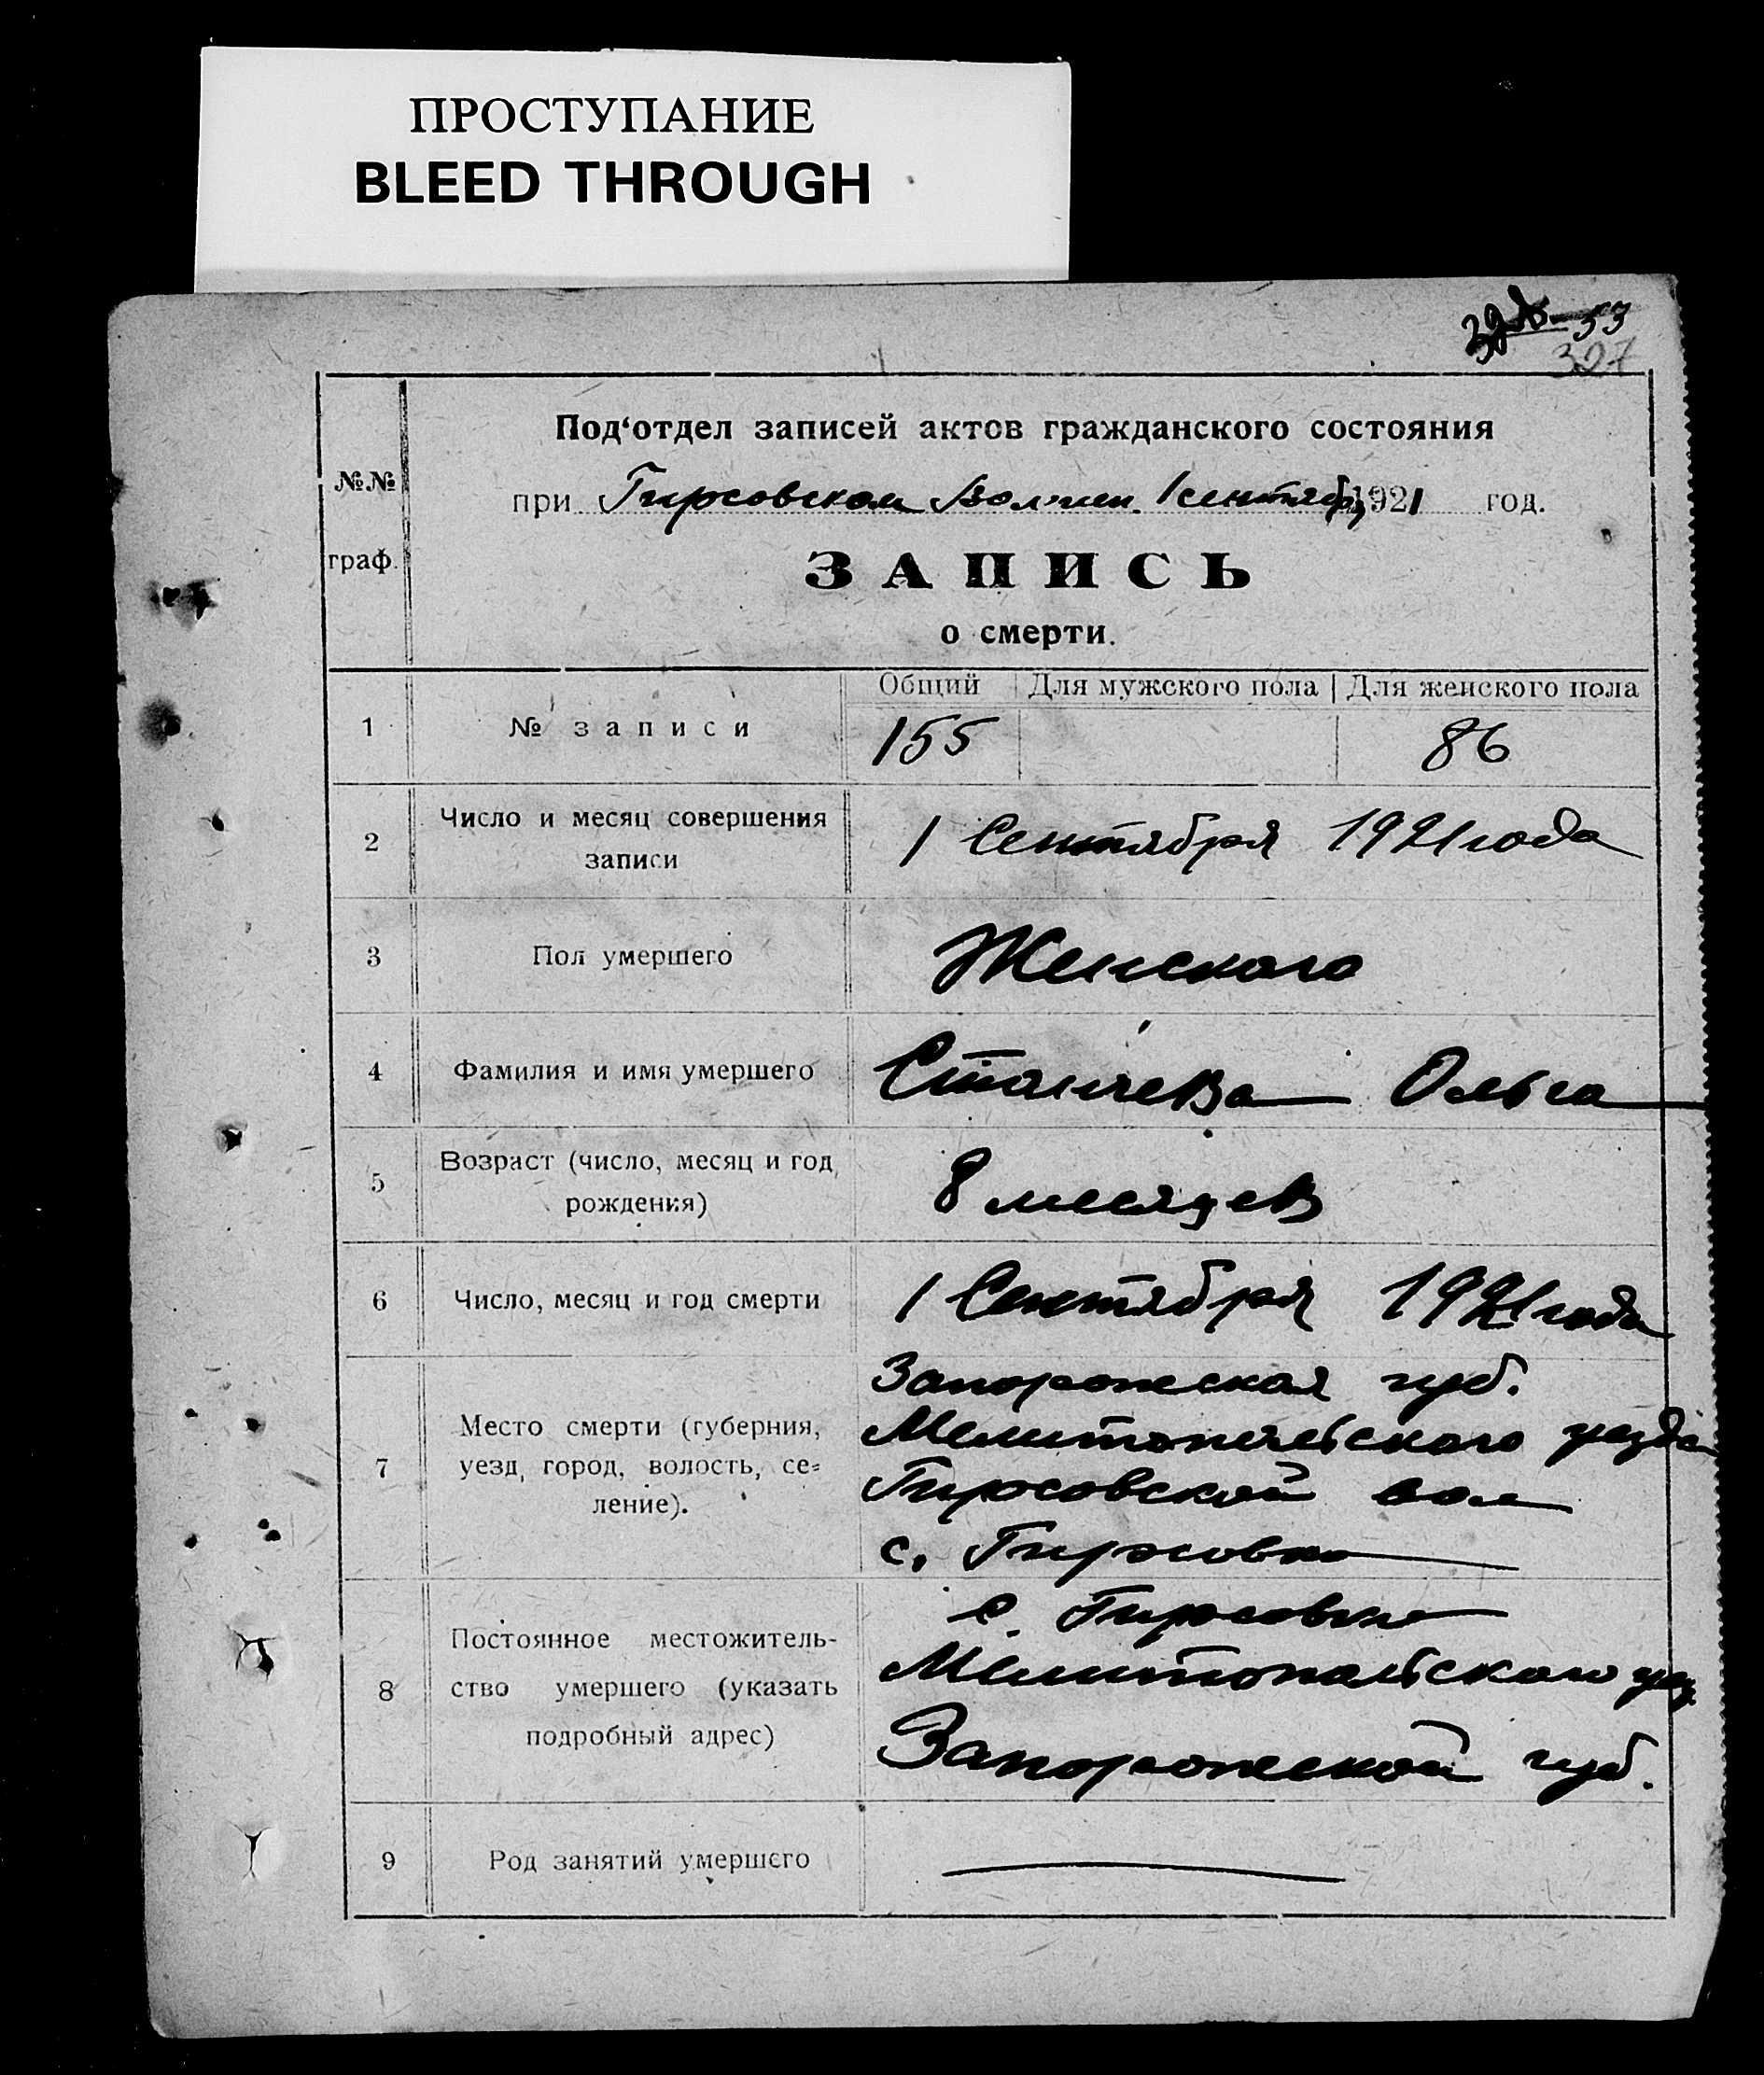 ПРОСТУПАНИЕ
BLEED THROUGH
53
327
№№ граф.
Под‘отдел записей актов гражданского состояния
при Гирсовском Вол.... 1 сентября 1921 год.
ЗАПИСЬ
о смерти.
Общий Для мужского пола Для женского пола
1 № записи 155 86
2 Число и месяц совершения
записи
1 Сентября 1921 года
3 Пол умершего Женского
4 Фамилия и имя умершего Станчева Ольга
5 Возраст (число, месяц и год
рождения)
8 месяцев
6 Число, месяц и год смерти 1 Сентября 1921 года
7 Место смерти (губерния,
уезд, город, волость, се-
ление).
Запорожская губ.
Мелитопольского уезда
Гирсовской вол
с. Гирсовка
8 Постоянное местожитель-
ство умершего (указать
подробный адрес)
с. Гирсовка
Мелитопольского уез
Запорожской губ.
9 Род занятий умершего